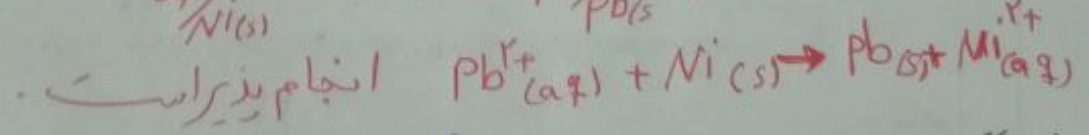 Ni(s) Pb(s
Pb²⁺(aq) + Ni(s) → Pb(s) + Ni²⁺(aq) انجام پذیر است.